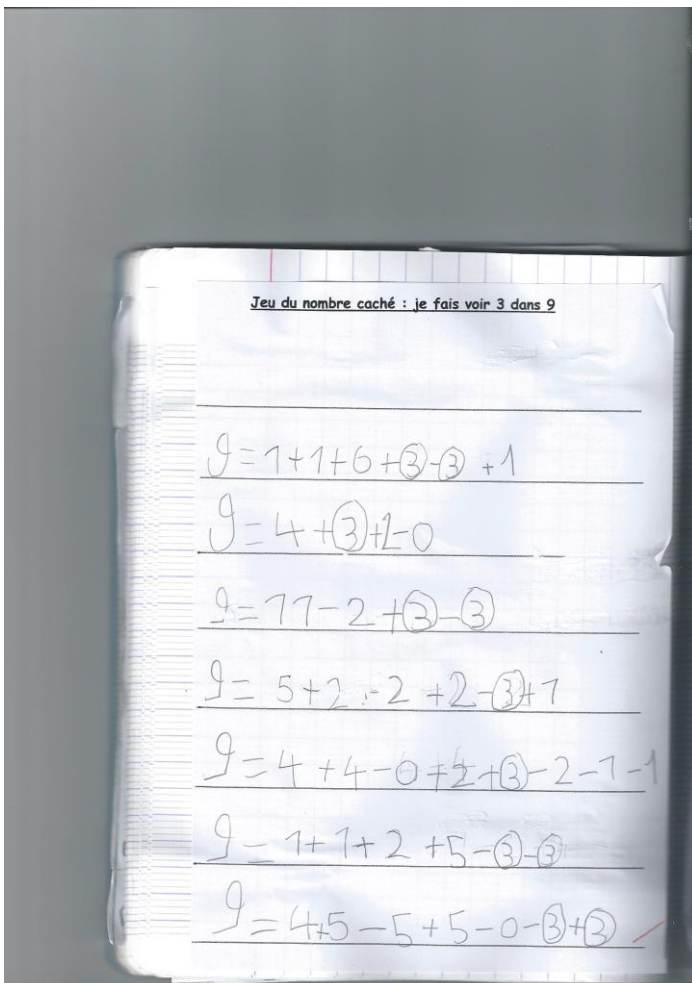 Jeu du nombre caché : je fais voir 3 dans 9
9=1+1+6+3-3 +1
9=4+3+2-0
9=11-2+3-3
9= 5+2 -2 +2-3+1
9=4+4-0+2+3-2-1-1
9=1+1+2+5-3-3
9=4+5-5+5-0-3+3